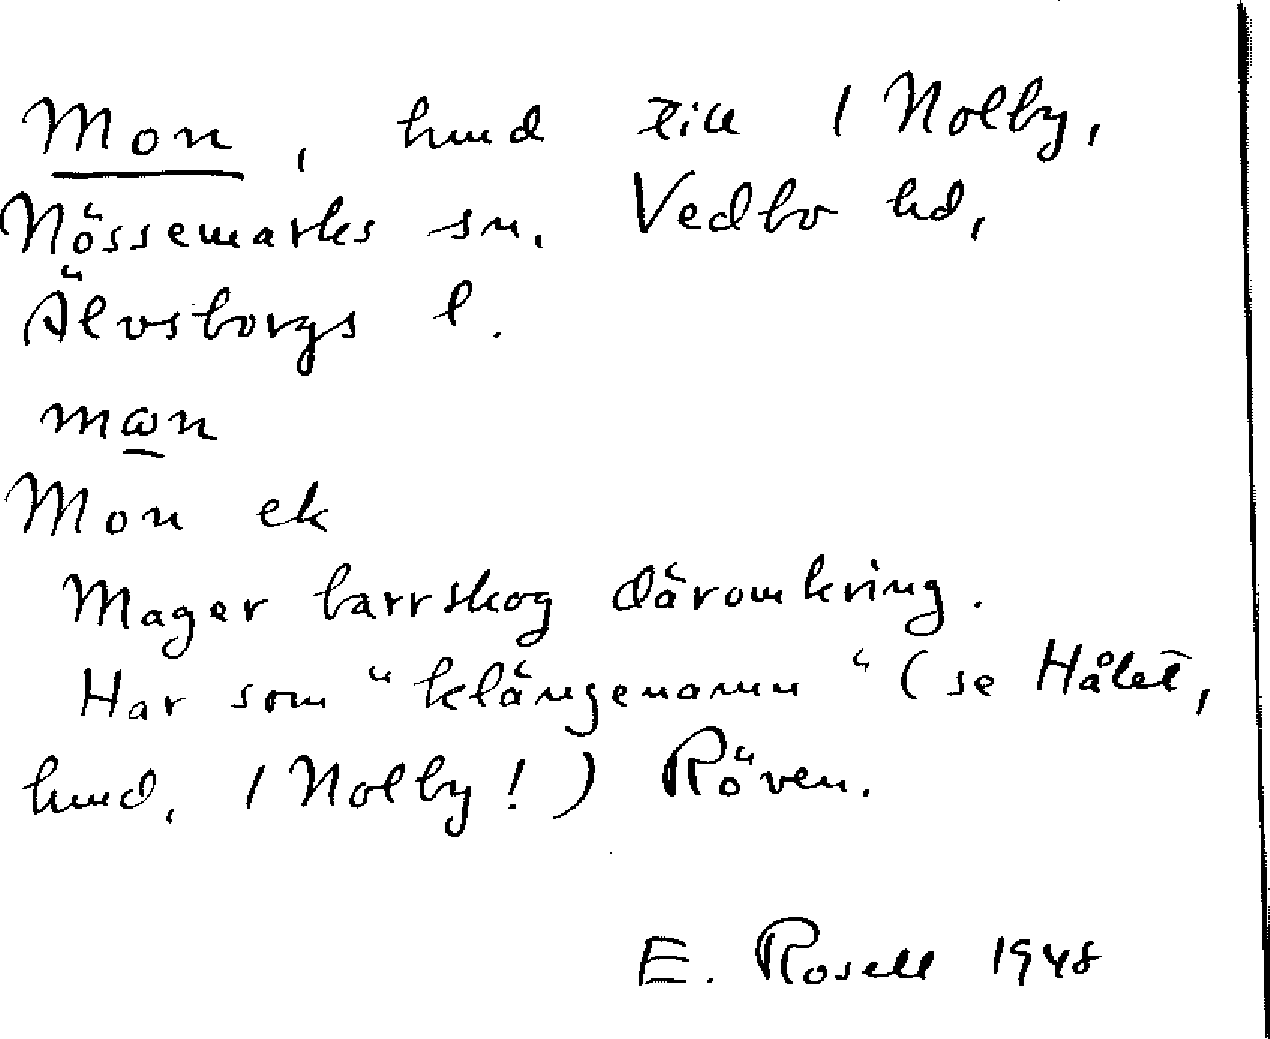 Mon, hmd till 1 Nolby,
Nössemarks sn. Vedbo hd,
Älvsborgs l.
mɷn
Mon ek
Mager barrskog däromkring.
Har som "klängenamn" (se Hålet,
hmd, 1 Nolby!) Röven.
E. Rosell 1948